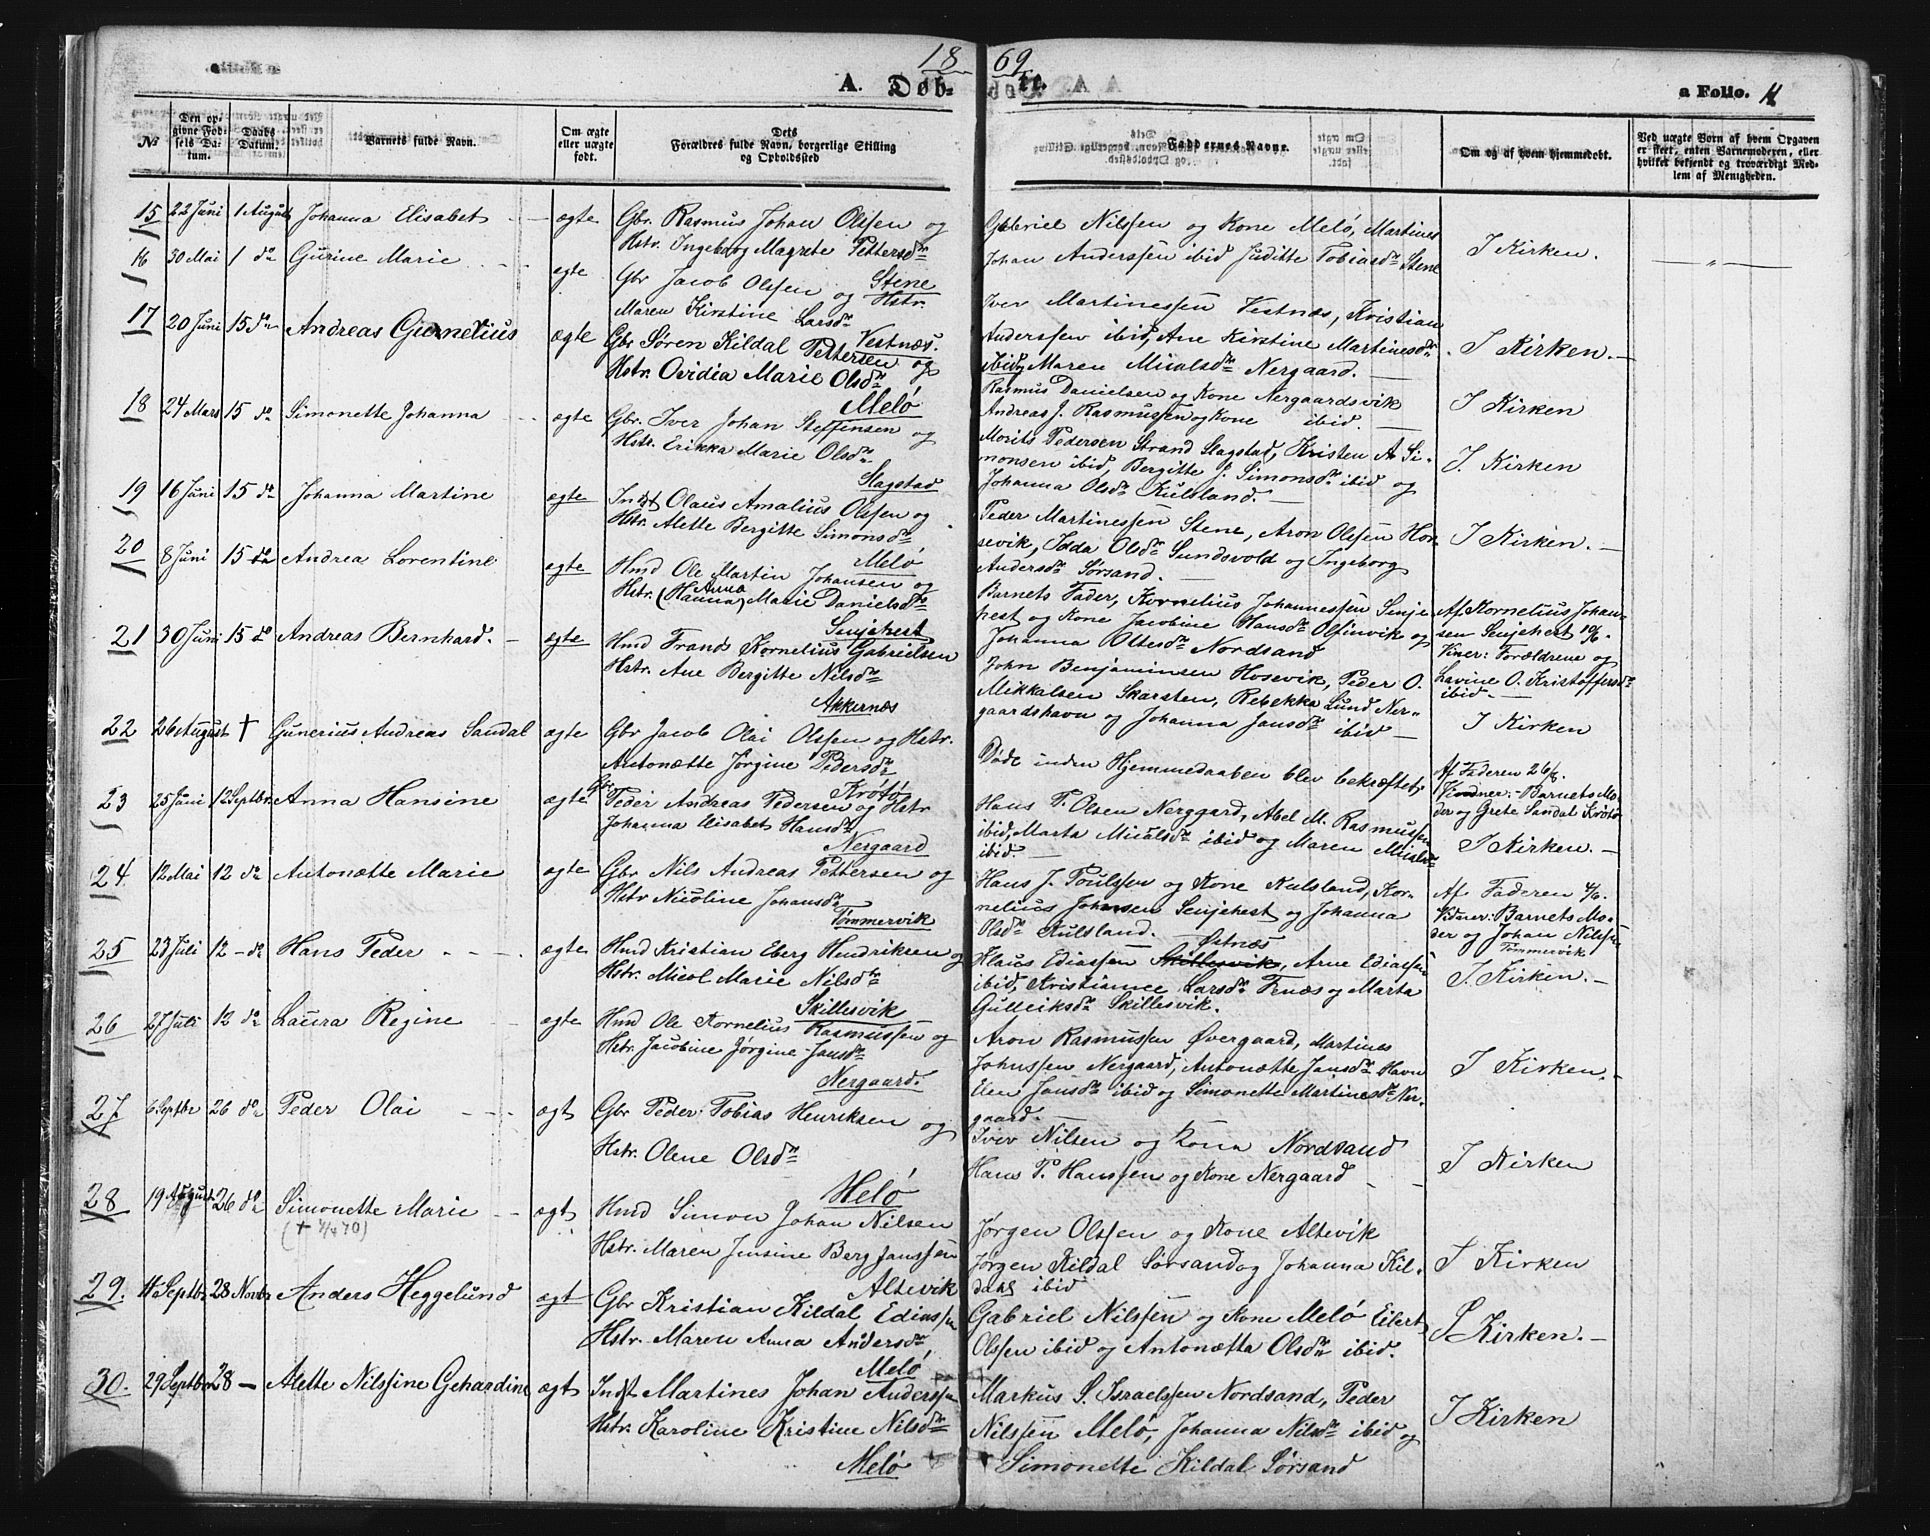 18 69
A. Døb- te.
a Folio. 11
№
Den opgivne Fødsels Datum.
Daabs Datum.
Barnets fulde Navn.
Om ægte eller uægte født.
Dets Forældres fulde Navn, borgerlige Stilling og Opholdssted
Faddernes Navne.
Om og af hvem hjemmedøbt.
Ved uægte Børn af hvem Opgaven er skeet, enten Barnemoderen, eller hvilket bekjendt og troværdigt Medlem af Menigheden.
15 22 Juni 1 August Johanna Elisabet ægte
Gbr. Rasmus Johan Olssen og
Hstr. Ingeborg Magrete Pettersdtr
Stene
Gabriel Nilssen og Kone Melö, Martines
Johan Anderssen ibid Juditte Tobiasdtr Stene
I Kirken.
16 30 Mai 1 do Gurine Marie ægte
Gbr Jacob Olssen og Hstr.
Maren Kirstine Larsdtr
Vestnæs.
Iver Martinessen Vestnæs, Kristian
Anderssen ibid, Ane Kirstine Martinesdtr
ibid, Maren Micalsdtr Nergaard.
I Kirken.
17 20 Juni 15 do Andreas Gornelius ægte
Gbr Sören Kildal Pettersen og
Hstr. Ovidia Marie Olsdtr
Melö
Rasmus Danielsen og Kone Nergaardsvik
Andreas J. Rasmussen og Kone ibid.
I Kirken
18 24 Mars 15 do Simonette Johanna ægte
Gbr. Iver Johan Steffensen og
Hstr. Erikka Marie Olsdtr
Slagstad
Morits Pedersen Strand Slagstad, Kristen A Si-
monsen ibid, Bergitte J. Simonsdtr ibid og
Johanna Olsdtr Kulsland.
I. Kirken
19 16 Juni 15 do Johanna Martine ægte
Indst Olaus Amalius Olssen og
Hstr. Alette Bergitte Simonsdtr
Melö
Peder Martinessen Stene, Aron Olssen Hor-
sevik, Idda Olsdtr Sundsvold og Ingeborg
Andersdtr Sørsand.
I Kirken.
20 8 Juni 15 do Andrea Lorentine ægte
Hmd Ole Martin Johansen og
Anna
Hstr. (Hanna) Marie Danielsdtr
Senjehest
Barnets Fader, Kornelius Johannessen Senje-
hest og Kone Jacobine Hansdtr Olfinvik og
Johanna Oltesdtr Nordsand
Af Kornelius Johan-
sen Senjehest 10/6.
Vinər: Forældrene og
Lavine O. Kristoffersdtr
ibid
21 30 Juni 15 do Andreas Bernhard. ægte
Hmd Frands Kornelius Gabrielsen
Hstr. Ane Bergitte Nilsdtr
Akkernæs
John Benjaminsen Hosevik, Peder O.
Mikkalsen Skarsten, Rebekka Lund Ner-
gaardshavn og Johanna Jansdtr ibid
I Kirken
22 26 August † Gunerius Andreas Sandal ægte
Gbr Jacob Olai Olssen og Hstr.
Antonætte Jørgine Pedersdtr
Krøtø
Døde inden Hjemmedaaben blev bekræftet.
Af Faderen 26/8.
Vindner: Barnets Mo-
der og Grete Sandal Krøtø
23 25 Juni 12 Septbr. Anna Hansine ægte
Gbr.
Peder Andreas Pedersen og Hstr
Johanna Elisabet Hansdtr
Nergaard
Hans P. Olsen Nerggard, Abel M. Rasmussen
ibid, Marta Micalsdtr ibid og Maren Micalsdtr
ibid.
I Kirken.
24 12 Mai 12 do Antonætte Marie ægte
Gbr Nils Andreas Pettersen og
Hstr Nicoline Johansdtr
Tømmervik
Hans J. Poulssen og Kone Kulsland, Kor-
nelius Johansen Senjehest og Johanna
Olsdtr Kulsland.
Af Faderen 4/6.
Vidner: Barnets Mo-
der og Johan Nilssen
Tømmervik
25 23 Juli 12 - do Hans Peder ægte
Hmd Kristian Eberg Hendriksen og
Hstr. Micol Marie Nilsdtr
Skillesvik
Østnæs
Klaus Ediassen Skillesvik, Arne Ediassen
ibid, Kristiance Larsdtr Fenæs og Marta
Gulleiksdtr Skillesvik.
I. Kirken.
26 27 Juli 12 do Laura Regine ægte
Hmd Ole Kornelius Rasmussen og
Hstr. Jacobine Jørgine Jansdtr
Nergaard.
Aron Rasmussen Øvergaard, Martines
Johnssen Nergaard, Antonætte Jansdtr Havn
Elen Jansdtr ibid og Simonette Martinesdtr Ner-
gaard.
I Kirken.
27 6 Septbr 26 do Peder Olai ægt
Gbr Peder Tobias Henriksen og
Hstr. Olene Olsdtr
Melö
Iver Nilsen og Kona Nordsand
Hans P. Hanssen og Kone Nergaard
I Kirken
28 19 August 26 do Simonette Marie ægt
(† 7/4 70)
Hmd Simon Johan Nilsen
Hstr. Maren Jensine Berg Janssen
Altevik
Jørgen Olssen og Kone Altevik
Jørgen Kildal Sørsand og Johanna Kil-
dahl ibid
I Kirken
29. 11 Septbr 28 Novbr Anders Heggelund ægt
Gbr Kristian Kildal Ediassen
Hstr. Maren Anna Andersdtr
Melö
Gabriel Nilssen og Kone Melö Eilert
Olssen ibid og Antonætta Olsdtr ibid.
I Kirken.
30. 29 Septbr 28 — Alette Nilssine Gehardine ægt
Indst Martines Johan Anderssen
Hstr. Karoline Kristine Nilsdtr
Melö
Markus S. Israelssen Nordsand, Peder
Nilssen Melö, Johanna Nilsdtr ibid og
Simonette Kildal Sørsand
I Kirken